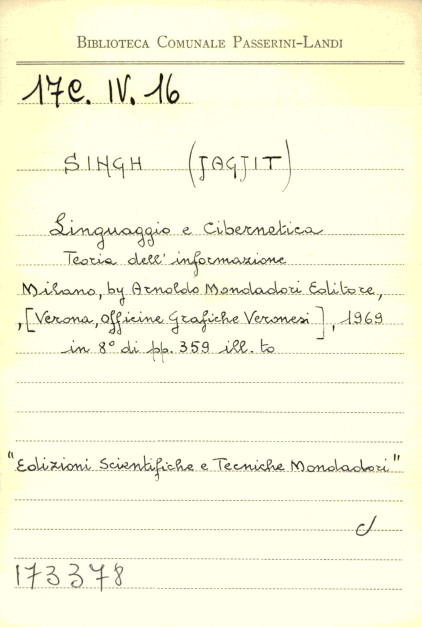 BIBLIOTECA COMUNALE PASSERINI-LANDI
17C. IV. 16
SINGH (JAGJIT)
Linguaggio e Cibernetica
Teoria dell'informazione
Milano, by Arnoldo Mondadori Editore,
,[Verona, Officine Grafiche Veronesi], 1969
in 8° di pp. 359 ill. to
"Edizioni Scientifiche e Tecniche Mondadori"
173378